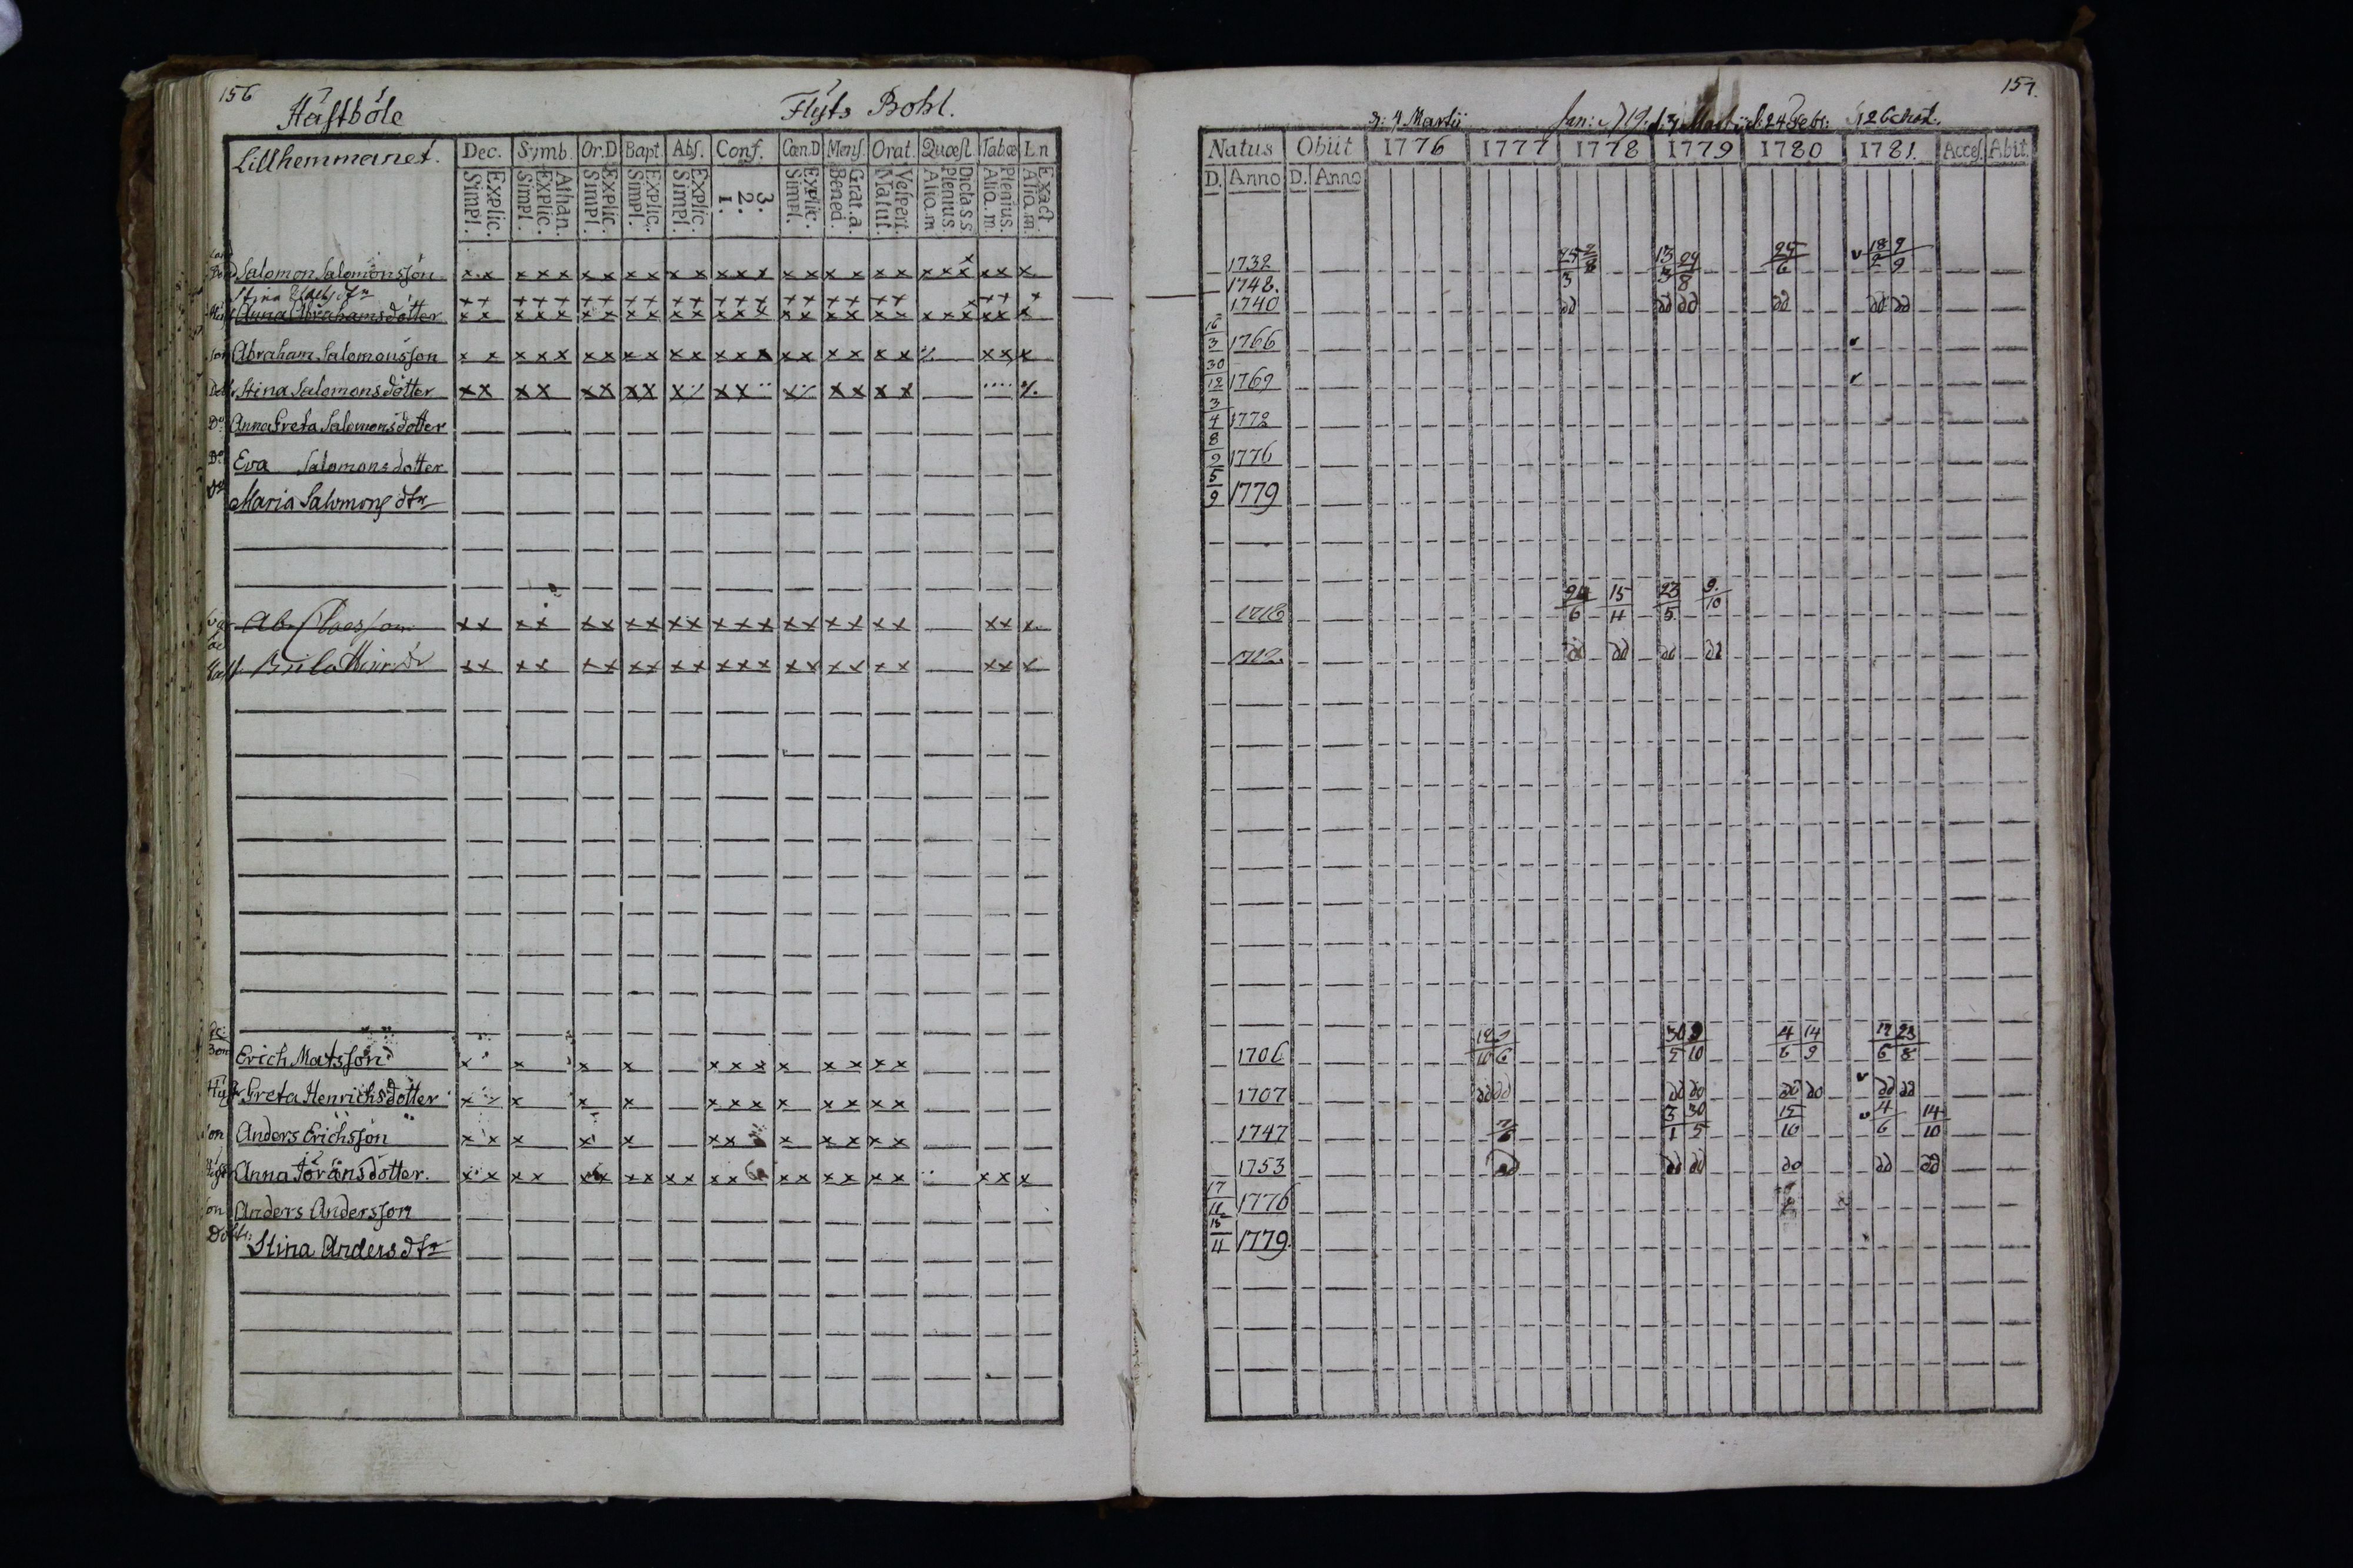 156
Hästböle Flyts Bohl.
Lillhemmanet. Dec. Symb. Or.D Bapt. Abs. Conf. Cœn.D Mens. Orat. Quæst. Tab.œ L.n
Simpl. Explic. Simpl. Explic. Athan. Simpl. Explic. Simpl. Explic. Simpl. Explic. 1. 2. 3. Simpl. Explic. Bened. Grat.a. Matut. Vespert. Aliq.m Plenius. Dicta S.S. Aliq.m. Plenius. Aliq.m. Exact.
Salomon Salomonsson x x x x x x x x x x x x x x x x x x x x x x x x x x
Stina
Hust Anna Abrahamsdotter x x x x x x x x x x x x x x x x x x x x x x x x
Son Abraham Salomonsson x x x x x x x x x x x x x x x x x x x x x x x
Dott Stina Salomonsdotter x x x x x x x x x x x x x x x x
Do Anna Greta Salomonsdotter
Do Eva Salomonsdotter
Do Maria Salomons dtr
x x x x x x x x x x x x x x x x x x x x x x
x x x x x x x x x x x x x x x x x x x x x x
Bon Erich Matsson x x x x x x x x x x x x
Hust Greta Henrichsdotter x x x x x x x x x x x x
Son Anders Erichsson x x x x x x x x x x x x
Hust Anna Göransdotter. x x x x x x x x x x x x x x x x x x x x x
Son Anders Andersson
Dottr: Stina Anders dtr
157.
d: 4 Martii Jan: d. 19. d: 3 Martii d: 24 Febr:
Natus Obiit 1776 1777 1778 1779 1780 1781. Acces. Abit.
D. Anno D. Anno
1732 25/3 2/8 13/3 29/8 25/6 18/2 9/9
1748.
1740 dd dd dd dd dd dd
16/3 1766
30/12 1769
3/4 1772
8/9 1776
5/9 1779
15/11 23/5 9/10
dd dd dd dd
1706 30/5 4/6 14/9 23/8
1707 dd dd dd dd dd do dd dd
1747 7/6 3/1 30/5 15/10 4/6 14/10
1753 dd dd dd do dd dd
17/11 1776
15/11 1779.